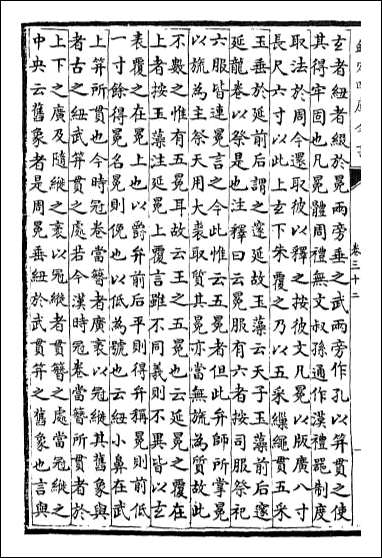 玄者紐者綴於冕兩旁垂之武兩旁作孔以筓貫之使
其得牢固也凡冕體周禮無文叔孫通作漢禮器制度
取法於周今還取彼以釋之按彼文凡冕以版廣八寸
長尺六寸以此上玄下朱覆之乃以五采繅繩貫五采
玉垂於延前後謂之邃延故玉藻云天子玉藻前後邃
延龍卷以祭是也注釋曰云冕服有六者按司服祭祀
六服皆連冕言之今此惟云五冕者但此弁師所掌冕
以旒為主祭天用大裘取質其冕亦當無旒為質故此
不數之惟有五冕耳故云王之五冕也云延冕之覆在
上者按玉藻注延冕上覆言雖不同義則不異皆以玄
表覆之在冕上也以爵弁前後平則得弁稱冕則前低
一寸餘得冕名冕則俛也以低為號也云紐小鼻在武
上筓所貫也今時冠卷當簪者廣袤以冠縰其舊象與
者古之紐武筓貫之處若今漢時冠卷當簪所貫者於
上下之廣及隨縰之袤以冠縰者貫簪之處當冠縰之
中央云舊象者是周冕垂紐於武貫筓之舊象也言與
卷三十二